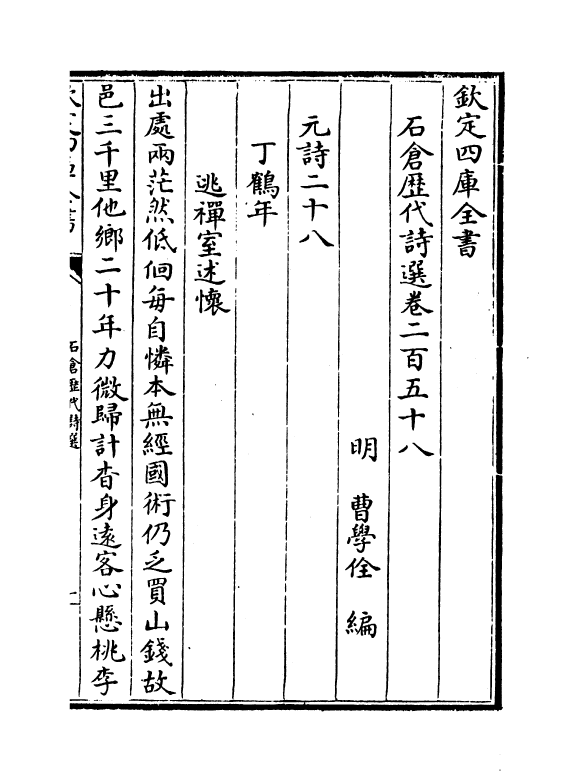 欽定四庫全書
石倉歷代詩選卷二百五十八
明 曹學佺 編
元詩二十八
丁鶴年
逃禪室述懷
出處兩茫然低佪每自憐本無經國術仍乏買山錢故
邑三千里他鄉二十年力微歸計杳身遠客心懸桃李
石倉歷代詩選